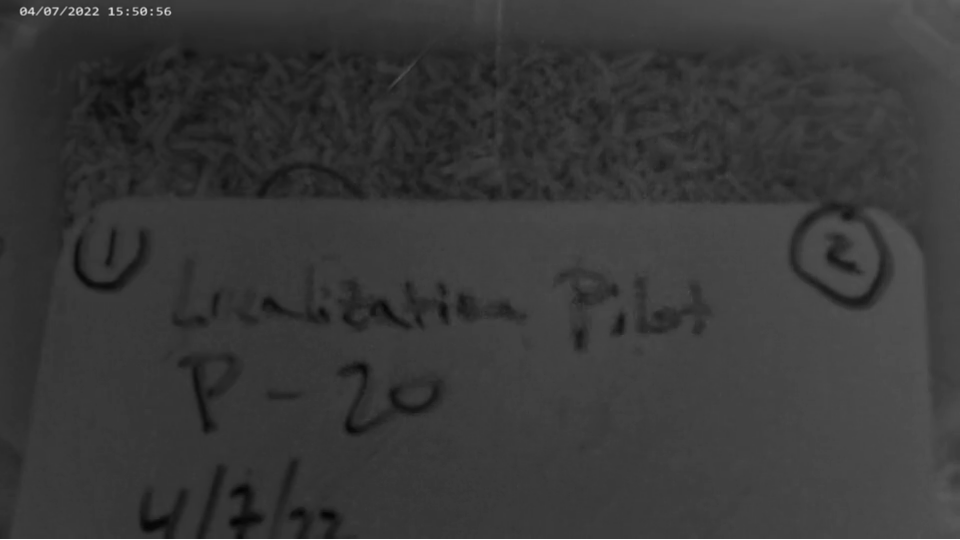 04/07/2022 15:50:56
1
2
Localization Pilot
P - 20
4/7/22